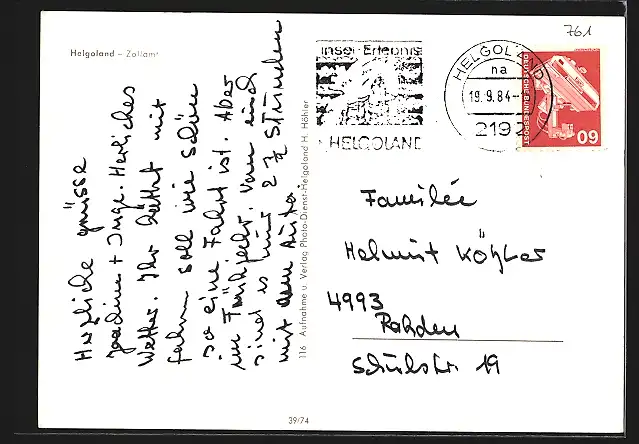 761
Helgoland – Zollamt
Insel-Erlebnis
HELGOLAND
HELGOLAND
na
19.9.84-
2192
DEUTSCHE BUNDESPOST
60
Herzliche Grüsse
Joachim + Inge. Herrliches
Wetter. Ihr hättet mit
fahren soll wie schön
so eine Fahrt ist. Aber
im Frühjahr. Von euch
sind es nur 2 ½ Stunden
mit dem Auto
116 Aufnahme u. Verlag Photo-Dienst-Helgoland H. Hähler
Familie
Helmut Köhler
4993
Rahden
Schulstr. 19
39/74